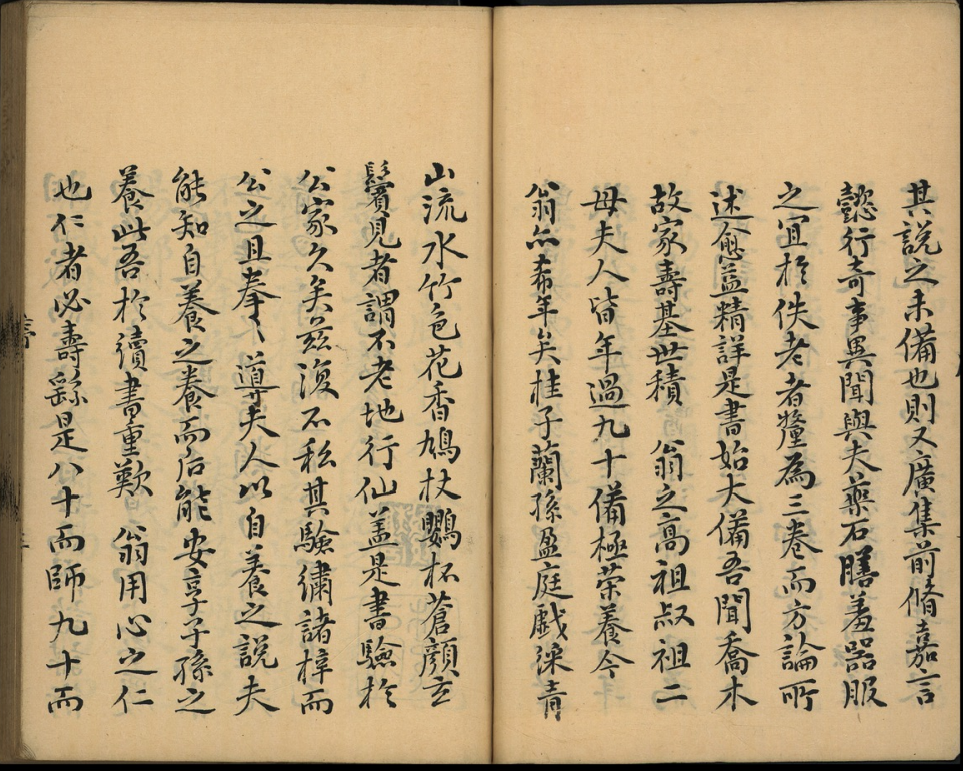 其說之未備也則又廣集前脩嘉言
懿行奇事異聞與夫藥石膳羞器服
之宜於佚老者釐為三卷而方論所
述愈益精詳是書始大備吾聞喬木
故家壽基世積 翁之高祖叔祖二
母夫人皆年過九十備極荣養今
翁亦希年矣桂子蘭孫盈庭戯綵青
山流水竹色花香鳩杖鸚杯蒼顔玄
鬢見者謂不老地行仙盖是書驗於
公家久矣茲復不私其驗繡諸梓而
公之且拳〻導夫人以自養之說夫
能知自養之養而后能安享子孫之
養此吾於續書重歎 翁用心之仁
也仁者必壽繇是八十而師九十而